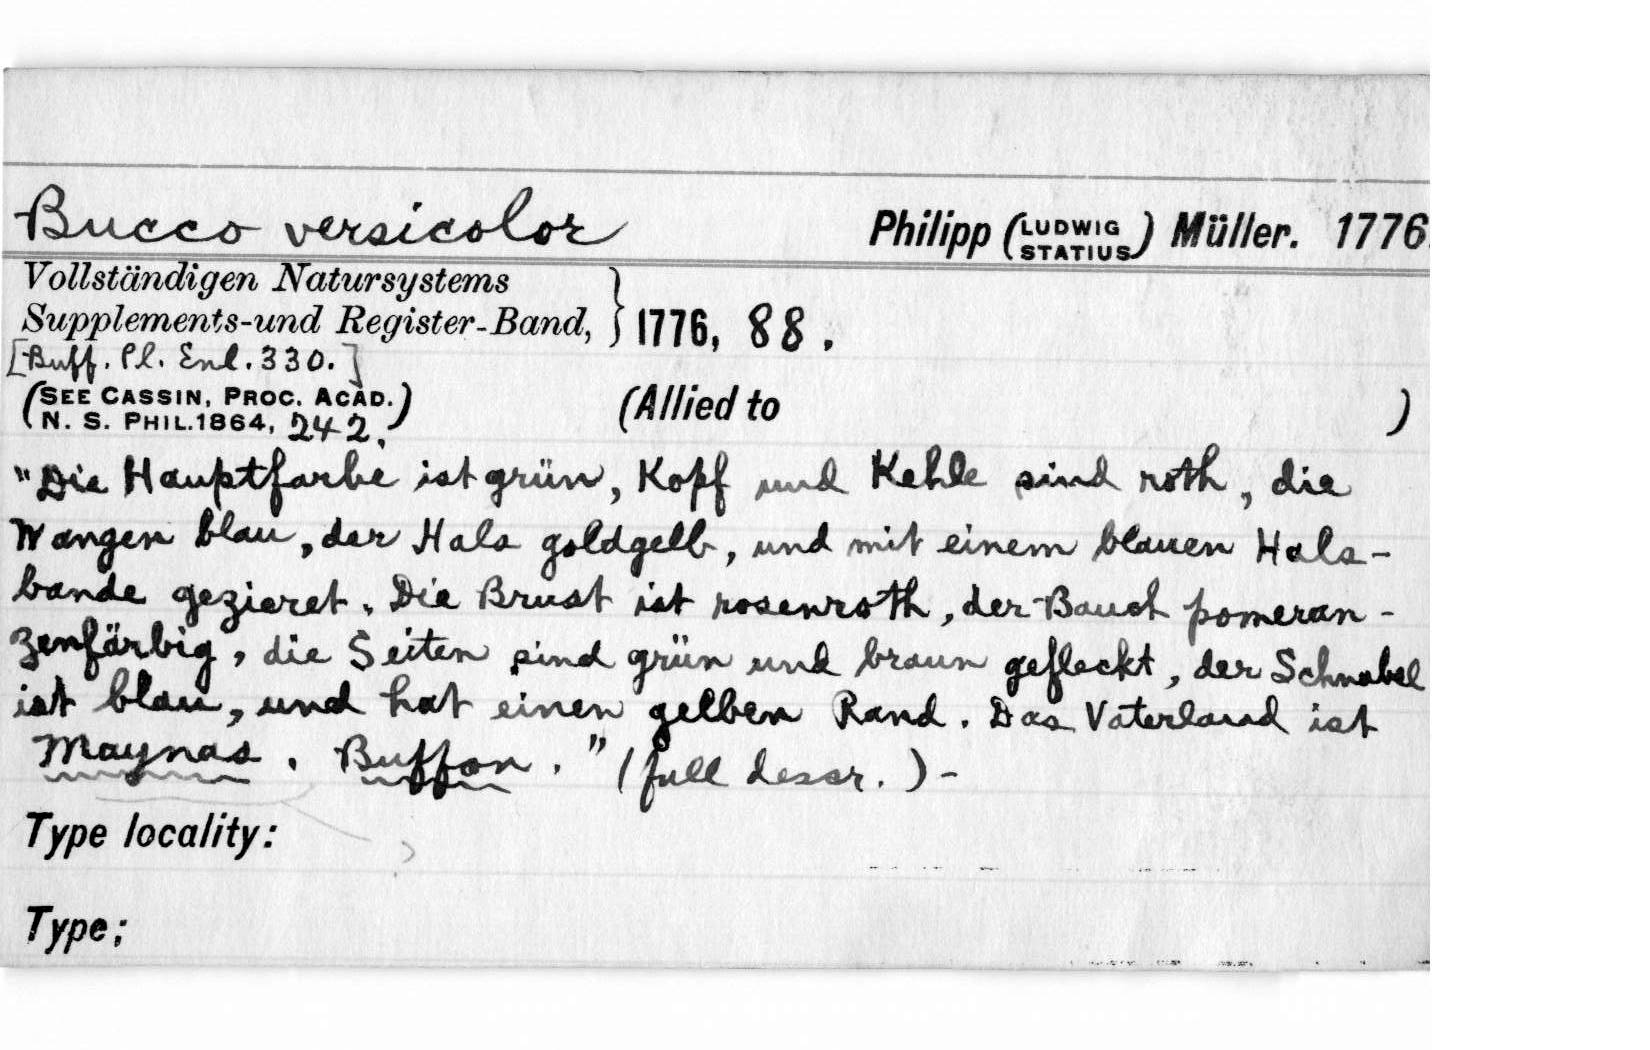 Bucco versicolor Philipp (LUDWIG STATIUS) Müller. 1776.
Vollständigen Natursystems
Supplements-und Register-Band, } 1776, 88.
[Buff. Pl. Enl. 330.]
(SEE CASSIN, PROC. ACAD. (Allied to )
N. S. PHIL. 1864, 242.)
"Die Hauptfarbe ist grün, Kopf und Kehle sind roth, die
Wangen blau, der Hals goldgelb, und mit einem blauen Hals-
bande gezieret. Die Brust ist rosenroth, der Bauch pomeran-
zenfärbig, die Seiten sind grün und braun gefleckt, der Schnabel
ist blau, und hat einen gelben Rand. Das Vaterland ist
Maynas. Buffon." (full descr.) -
Type locality:
Type;